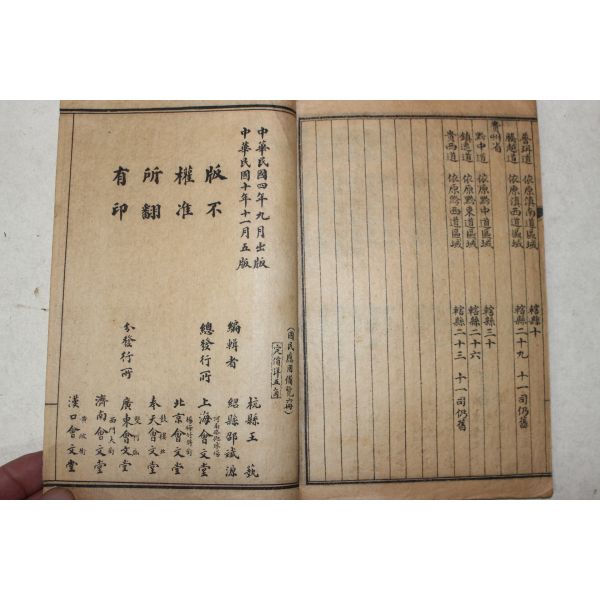 普洱道　依原滇南道區域　轄縣十
騰越道　依原滇西道區域　轄縣二十九　十一司仍舊
貴州省
黔中道　依原黔中道區域　轄縣三十
鎮遠道　依原黔東道區域　轄縣二十六
貴西道　依原黔西道區域　轄縣二十三　十一司仍舊
中華民國四年九月出版
中華民國十年十一月五版
版權所有
不准翻印
(國民應用備覽六冊)
定價洋五角
編輯者
杭縣王藝
紹縣邵斌源
總發行所
上海會文堂
分發行所
北京會文堂
鼓樓北
奉天會文堂
雙門底
廣東會文堂
西門大街
濟南會文堂
黃陂街
漢口會文堂